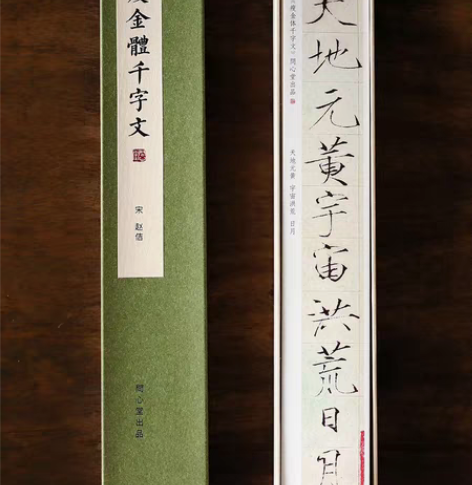 瘦金體千字文
宋 赵佶
問心堂出品
瘦金体千字文》問心堂出品
天地元黄 宇宙洪荒 日月
天地元黄宇宙洪荒日月